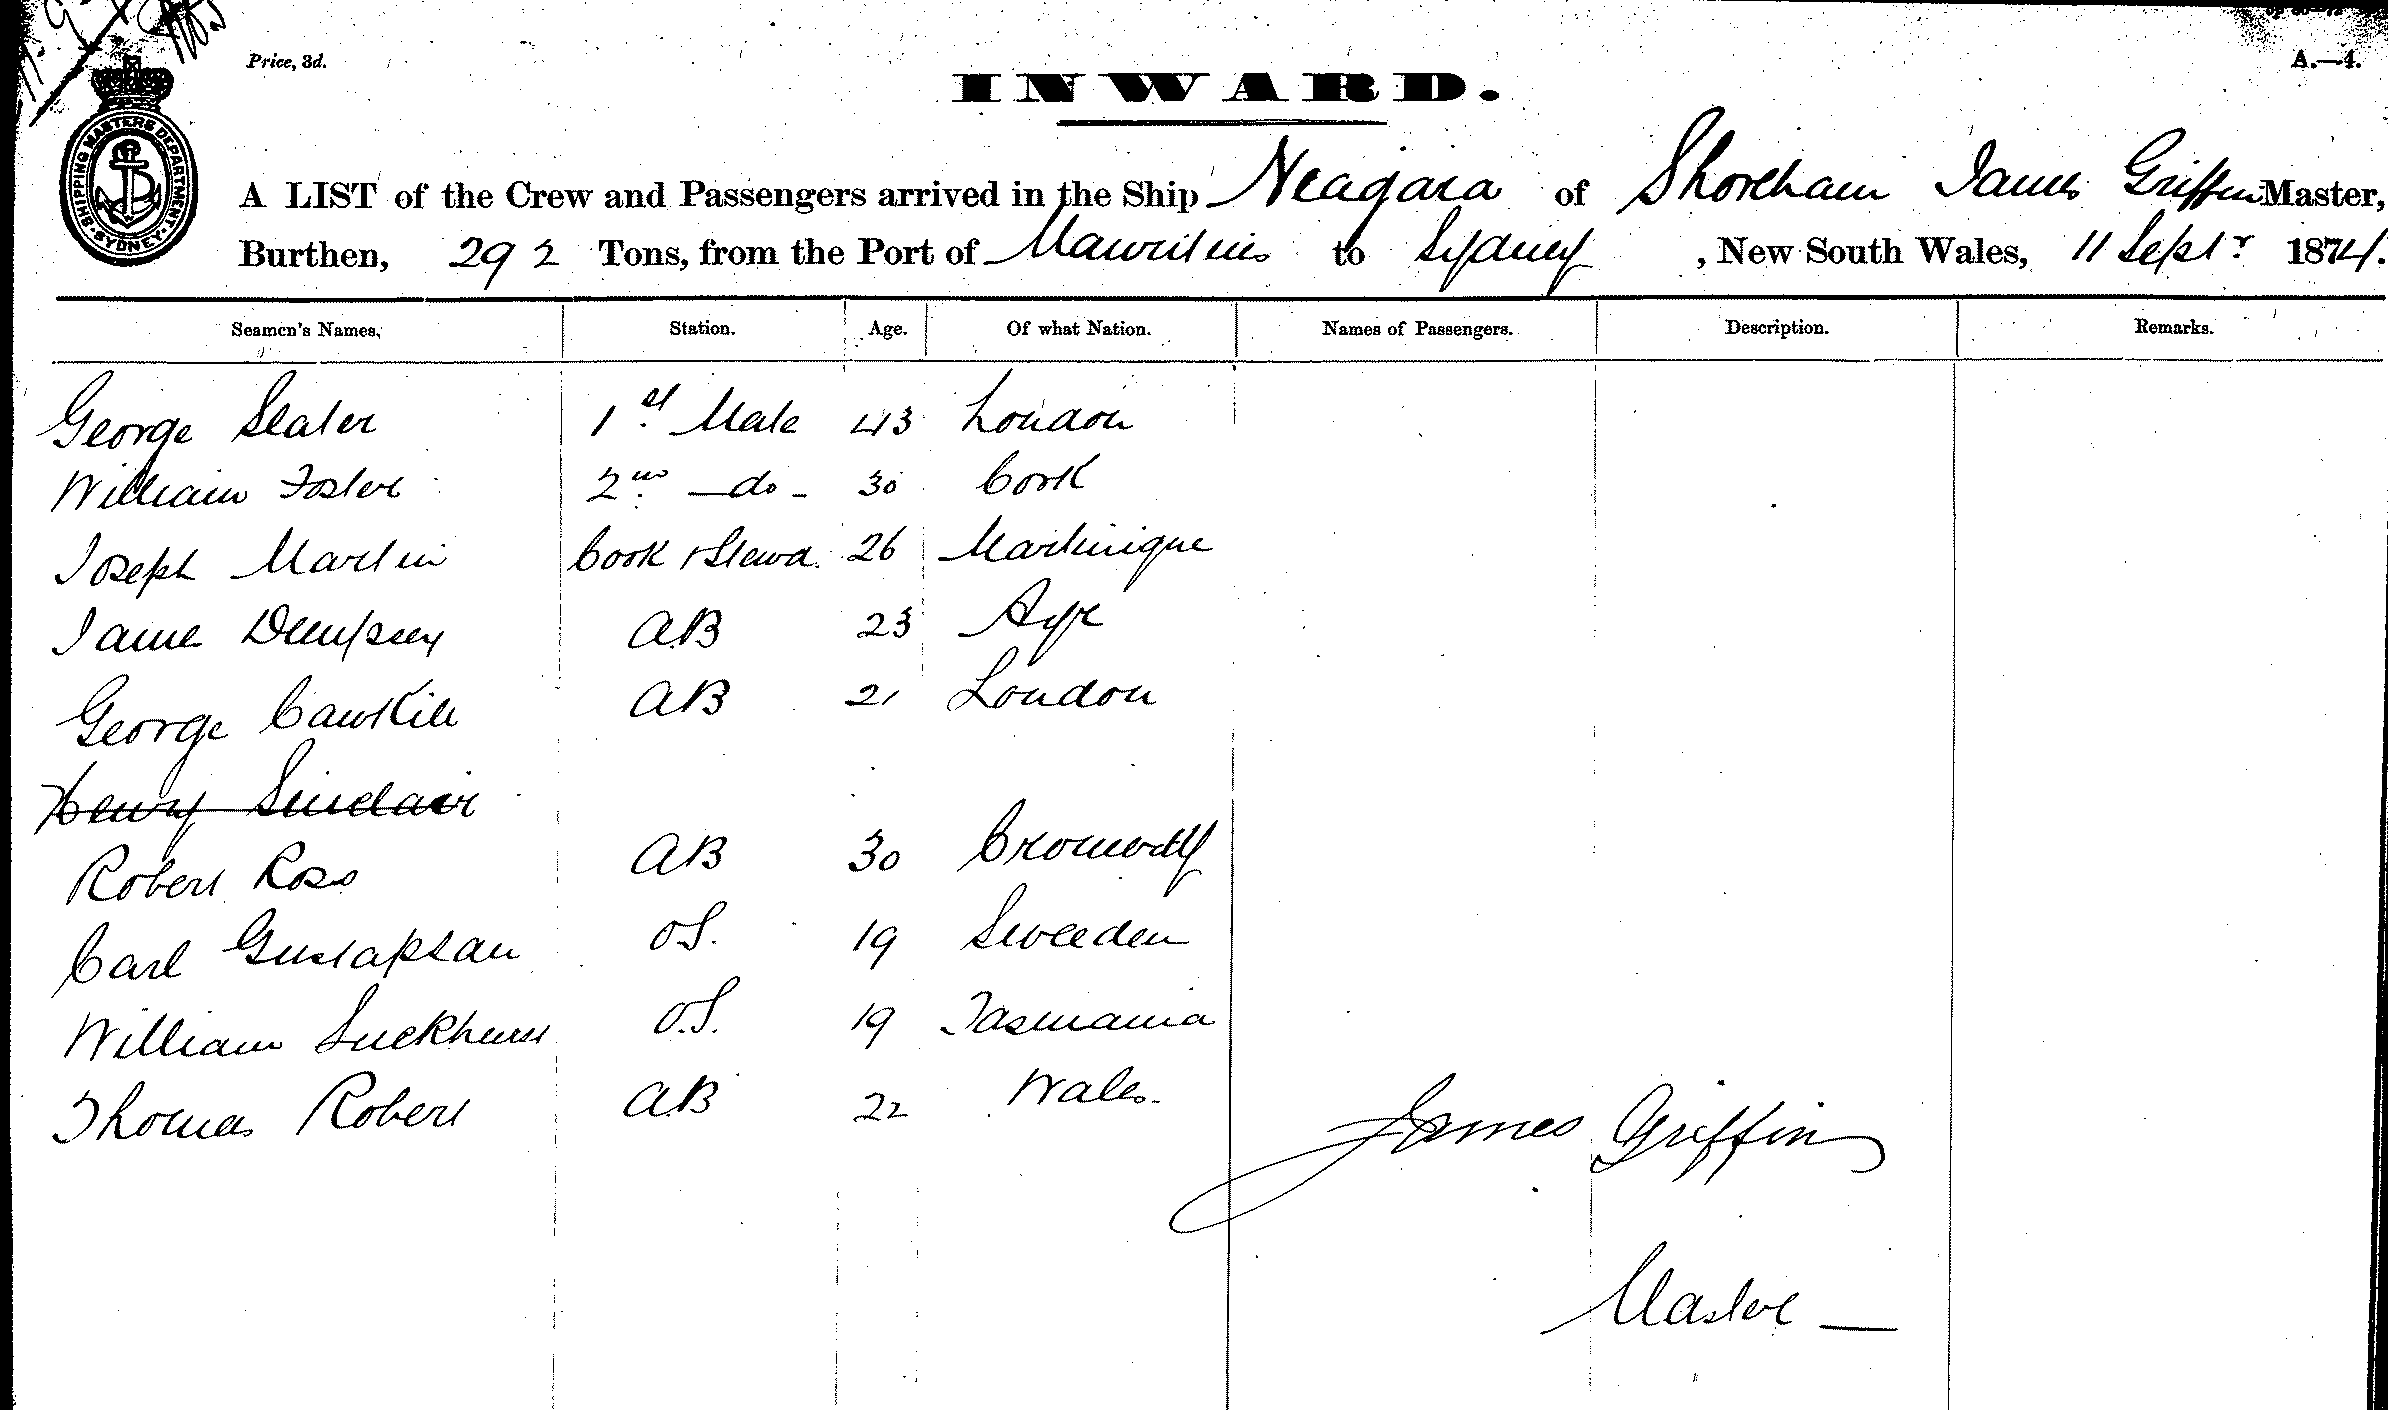 Price, 3d.
A.—4.
INWARD.
SHIPPING MASTERS DEPARTMENT
SYDNEY
A LIST of the Crew and Passengers arrived in the Ship Neagara of Shoreham James Griffin Master,
Burthen, 292 Tons, from the Port of Mauritius to Sydney, New South Wales, 11 Septr 1874.
Seamen's Names. Station. Age. Of what Nation. Names of Passengers. Description. Remarks.
George Slater 1st Mate 43 London
William Foster 2nd —do- 30 Cork
Joseph Martin Cook & Stewd. 26 Martinique
James Dempsey AB 23 Ayr
George Cawkill AB 21 London
Henry Sinclair
Robert Ross AB 30 Cromarty
Carl Gustafsan OS. 19 Sweeden
William Luckhurst O.S. 19 Tasmania
Thomas Robert AB 22 Wales.
James Griffin
Master —